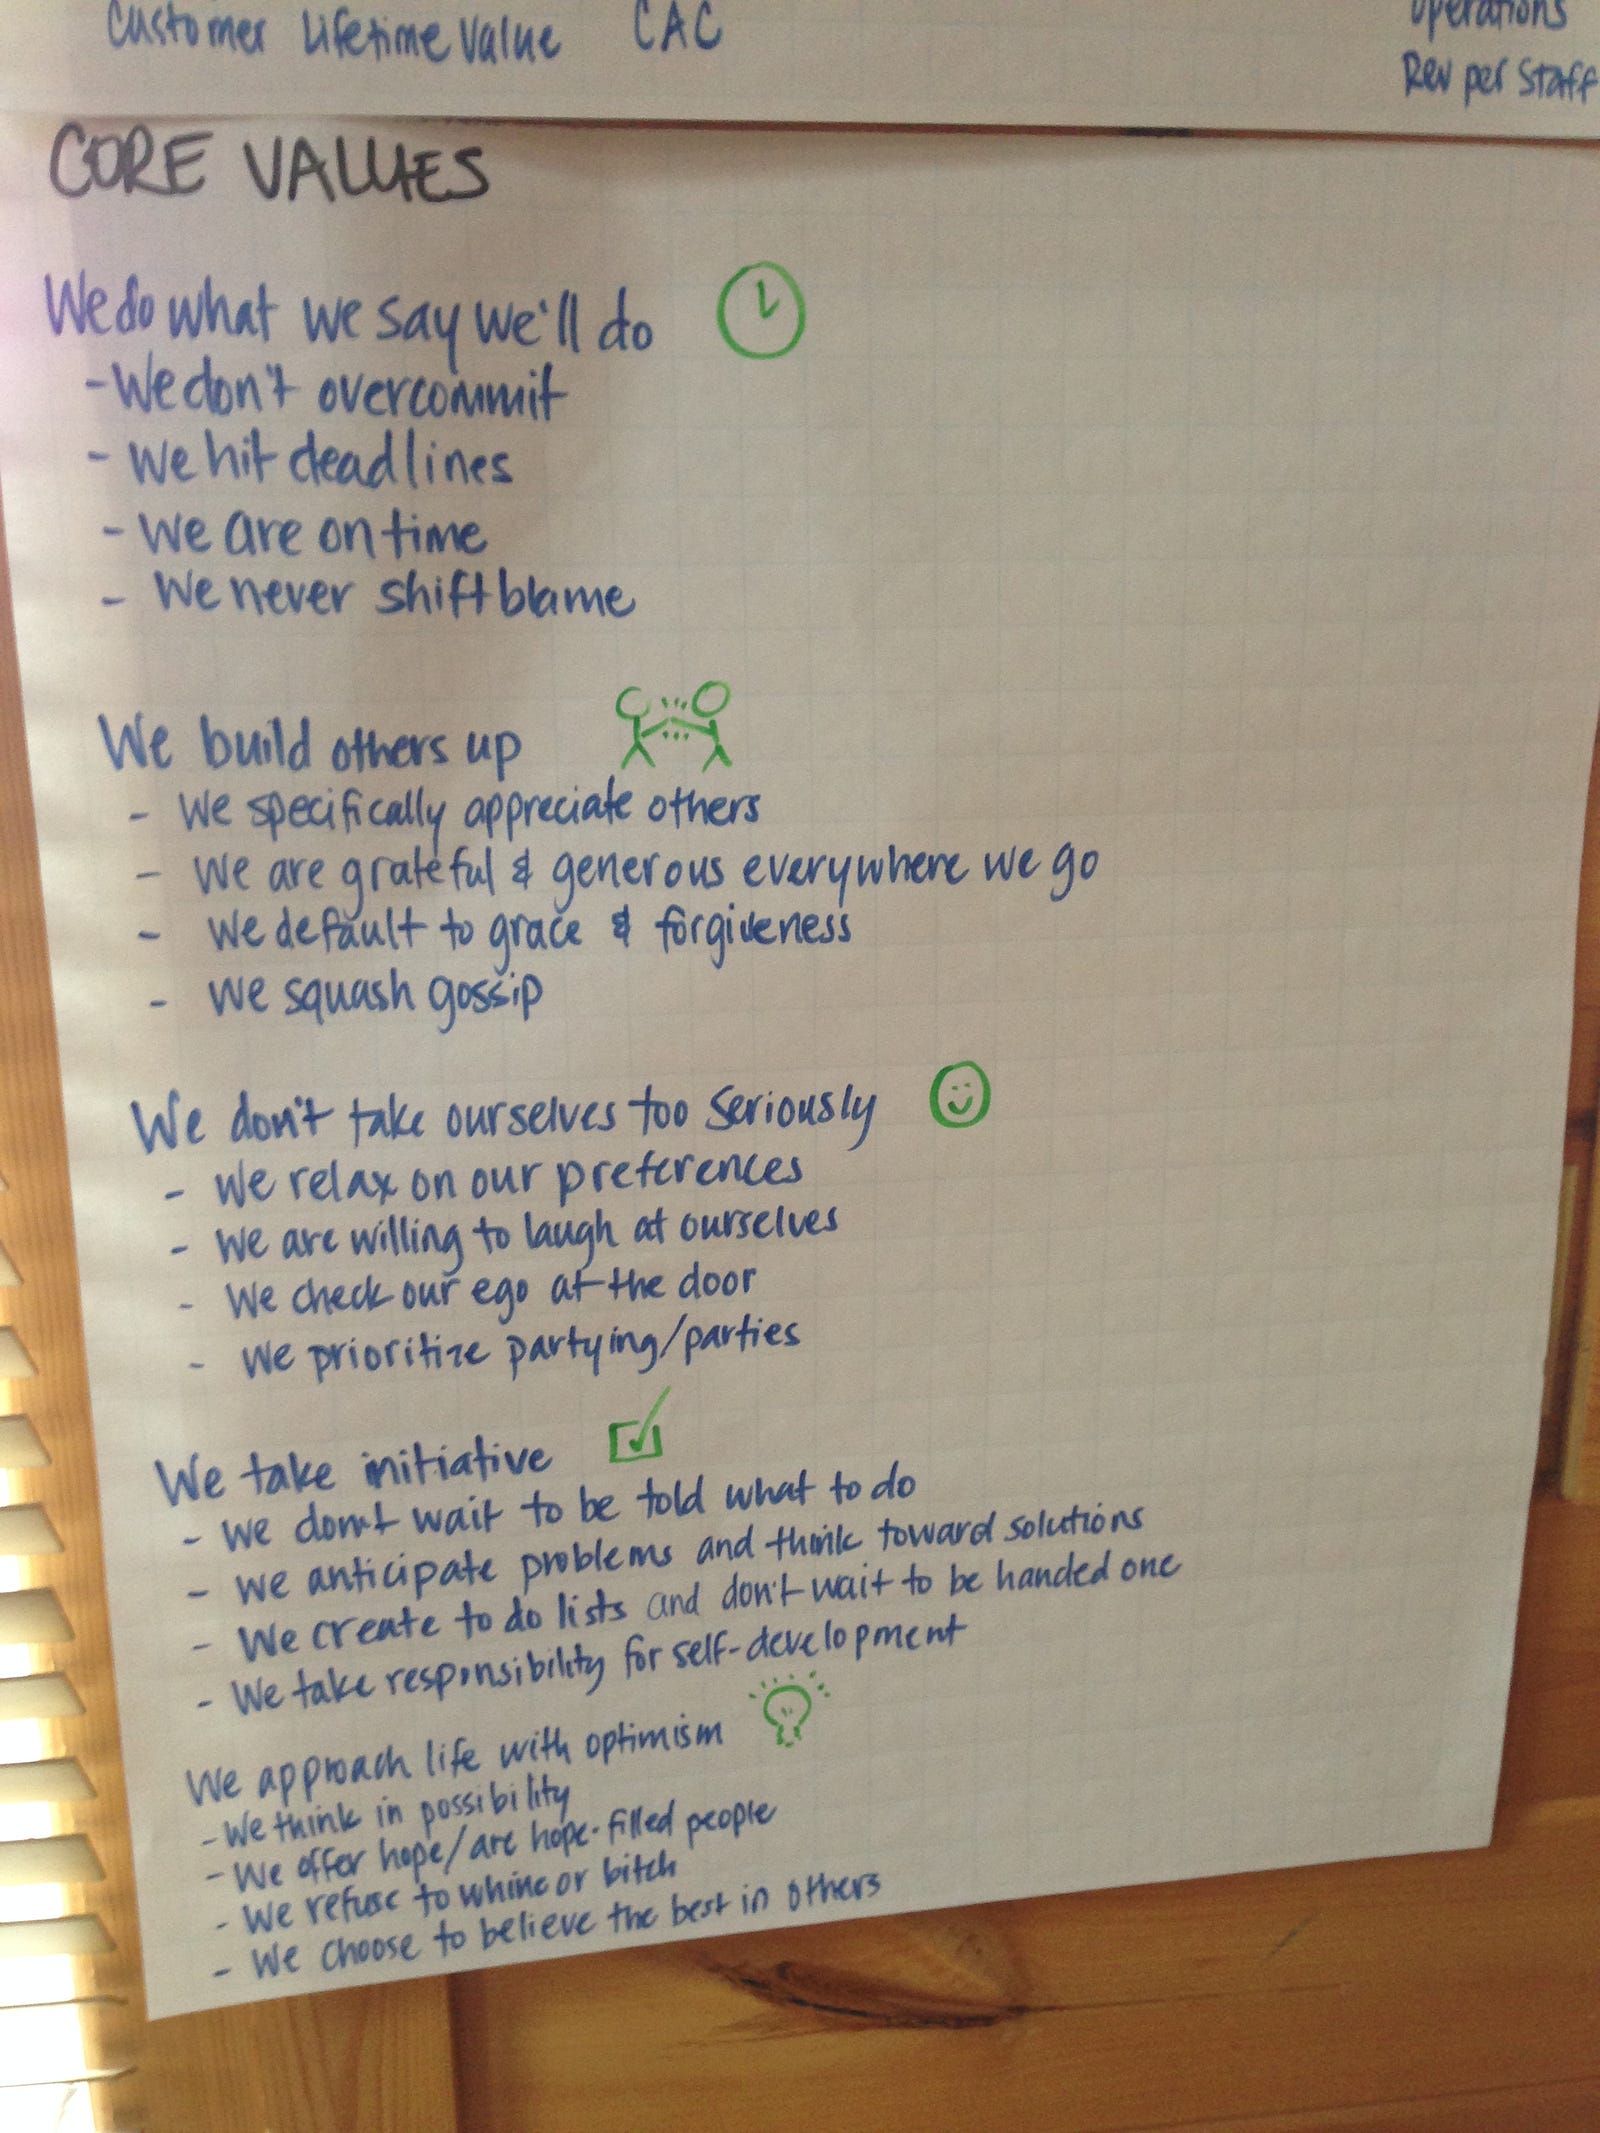 Customer Lifetime Value CAC
Operations
Rev per Staff
CORE VALUES
We do what we say we'll do
- We don't overcommit
- We hit deadlines
- We are on time
- We never shift blame
We build others up
- We specifically appreciate others
- We are grateful & generous everywhere we go
- We default to grace & forgiveness
- We squash gossip
We don't take ourselves too seriously
- We relax on our preferences
- We are willing to laugh at ourselves
- We check our ego at the door
- We prioritize partying/parties
We take initiative
- We don't wait to be told what to do
- We anticipate problems and think toward solutions
- We create to do lists and don't wait to be handed one
- We take responsibility for self-development
We approach life with optimism
- We think in possibility
- We offer hope/are hope-filled people
- We refuse to whine or bitch
- We choose to believe the best in others